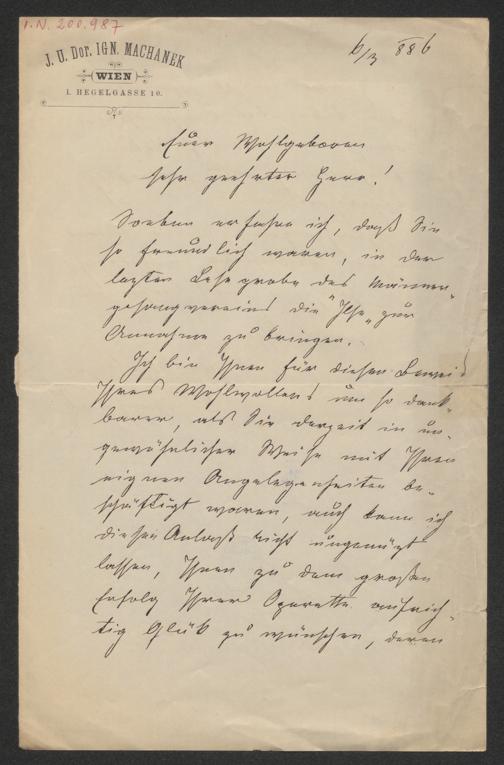 I.N. 200.987
J. U. Dor. IGN. MACHANEK
WIEN
I. HEGELGASSE 10.
6/3 886
Euer Wohlgeboren
sehr geehrter Herr!
Soeben erfahre ich, daß Sie
so freundlich waren, in der
lezten Leseprobe des Männer"
gesangvereins die "Ilse" zur
Annahme zu bringen.
Ich bin Ihnen für diesen Beweis
Ihres Wohlwollens um so dank"
barer, als Sie derzeit in un"
gewöhnlicher Weise mit Ihren
eignen Angelegenheiten be"
schäftigt waren, auch kann ich
diesen Anlaß nicht ungenüzt
lassen, Ihnen zu dem großen
Erfolg Ihrer Operette aufrich"
tig Glük zu wünschen, deren